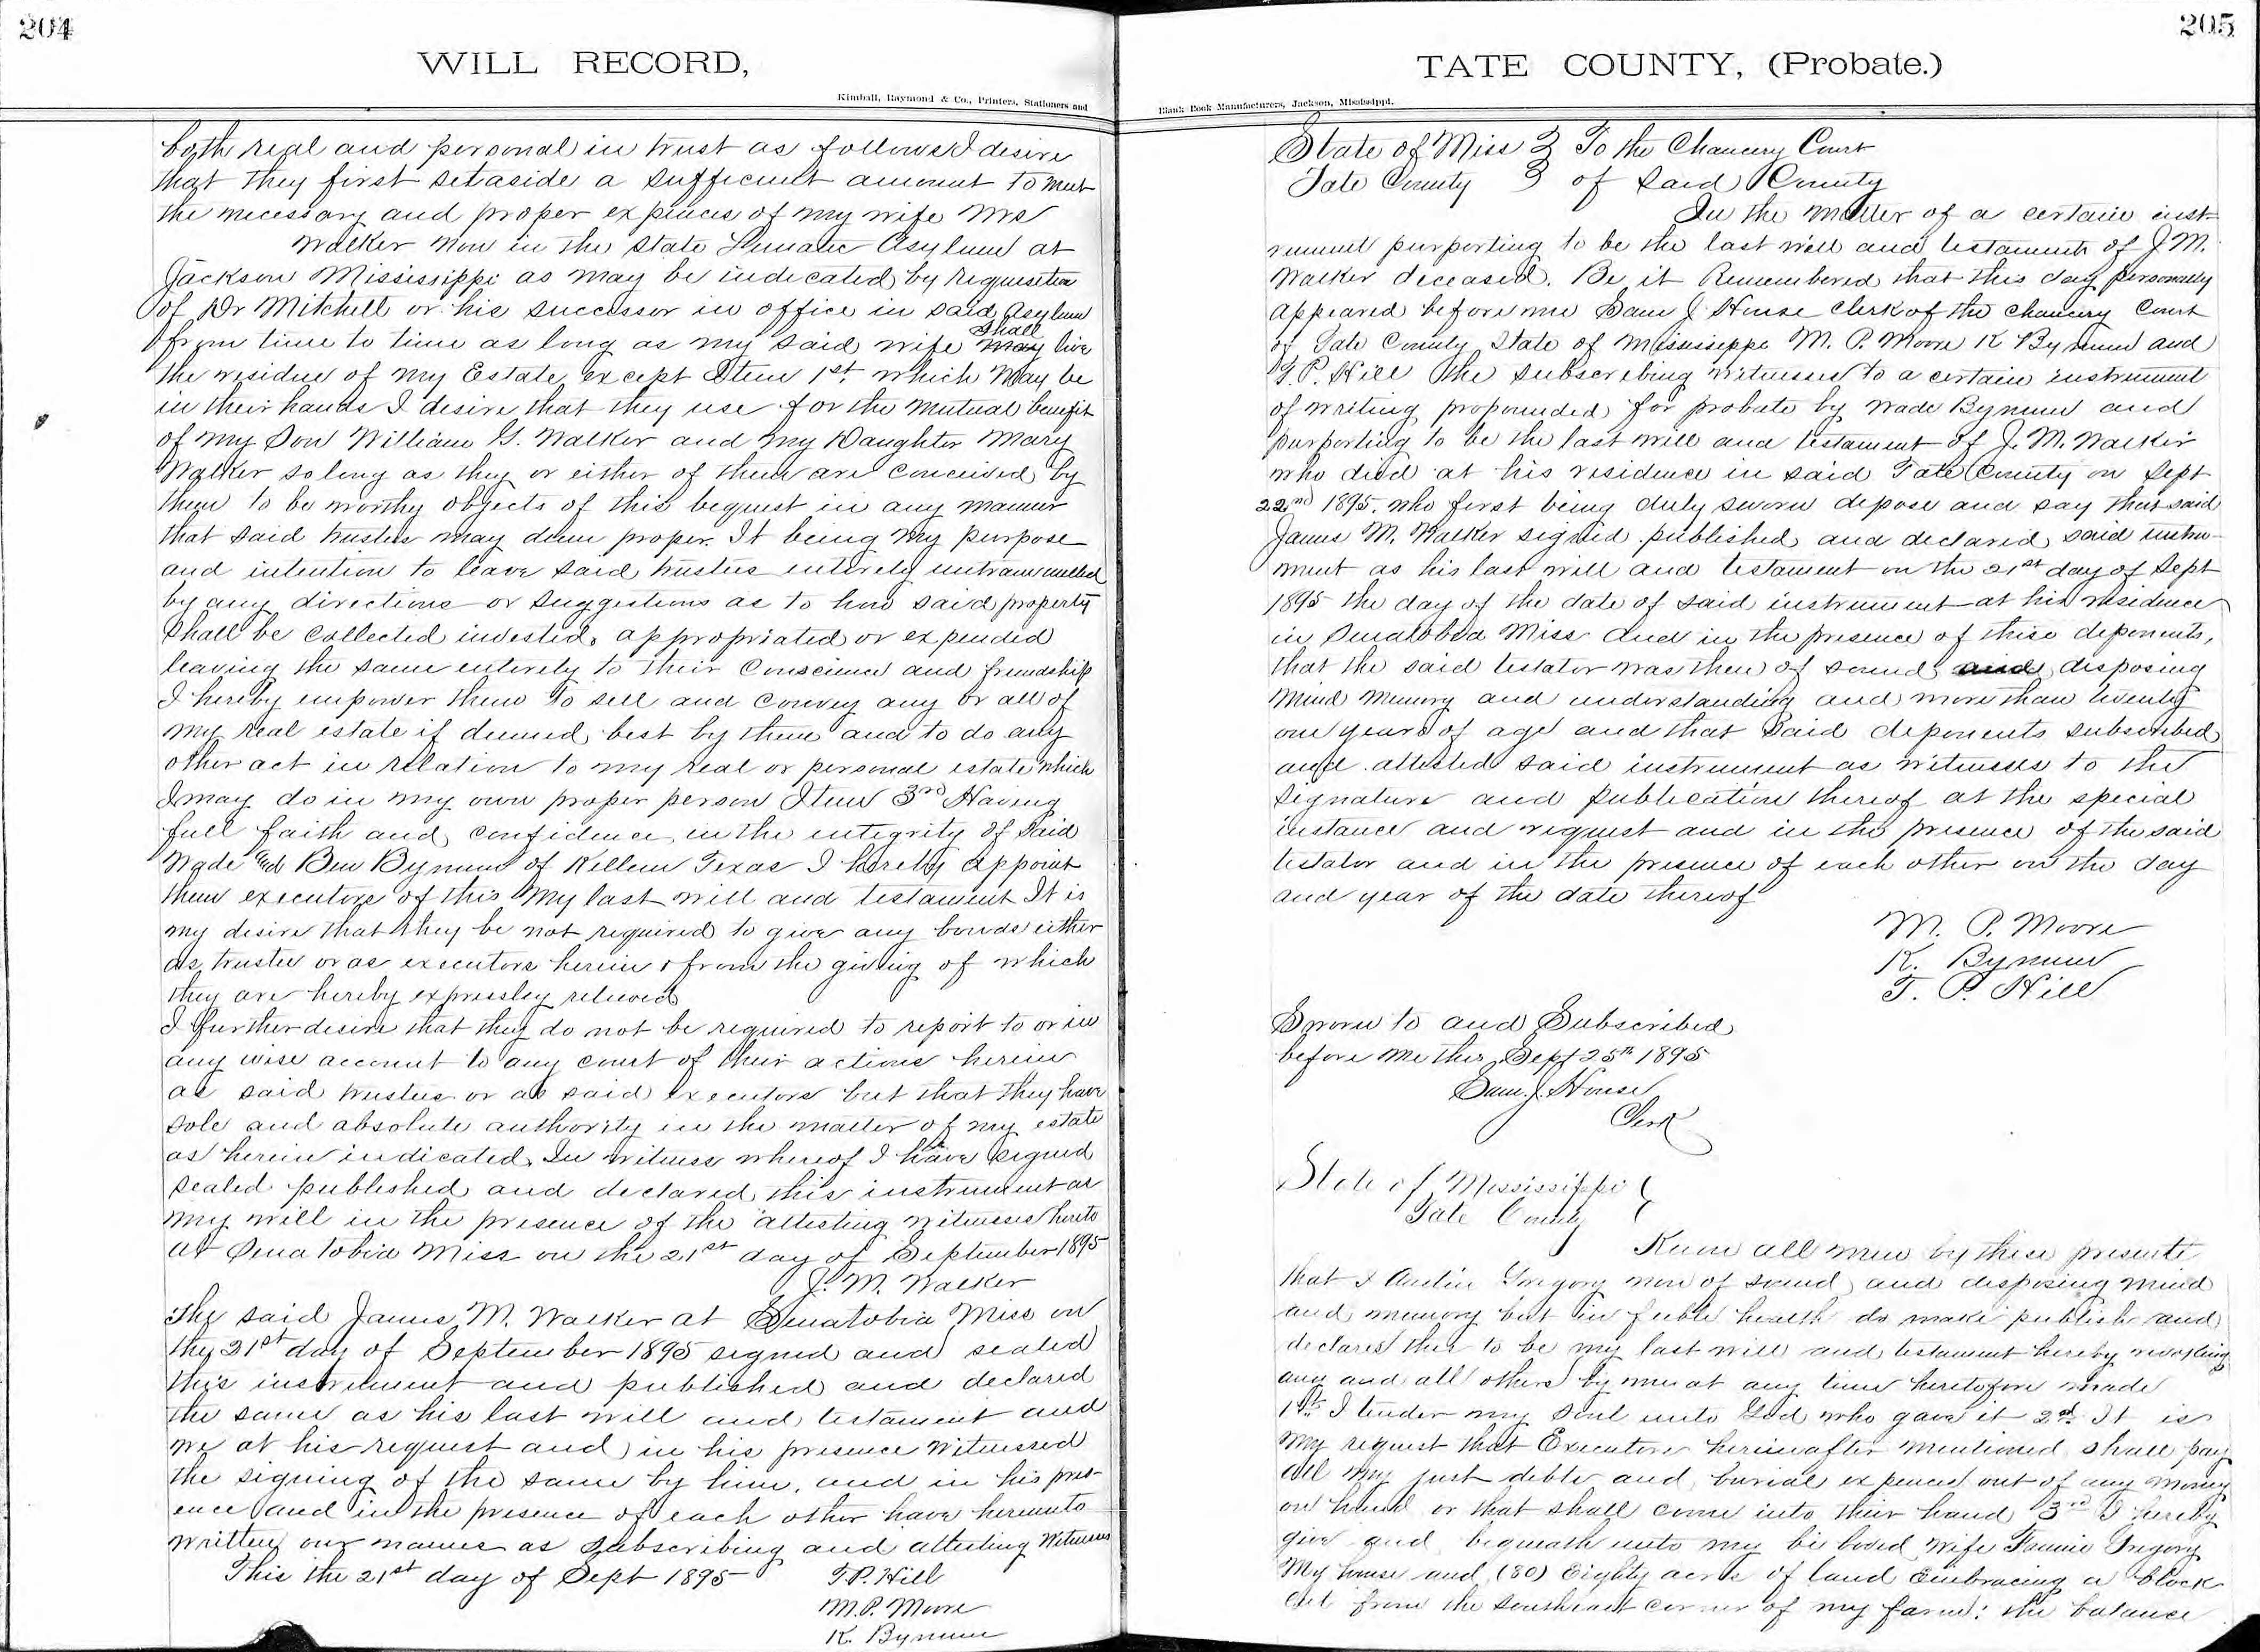 204
WILL RECORD,
Kimball, Raymond & Co., Printers, Stationers and
both real and personal in trust as follows I desire
that they first set aside a sufficient amount to meet
the necessary and proper expences of my wife Mrs
Walker now in the State Lunatic Asylum at
Jackson Mississippi as may be indicated by requisition
of Dr Mitchell or his successor in office in said Asylum
from time to time as long as my said wife may shall live
the residue of my Estate except Item 1st. which may be
in their hands I desire that they use for the mutual benefit
of my Son William G. Walker and my Daughter Mary
Walker so long as they or either of them are conceived by
them to be worthy objects of this bequest in any manner
that said trustees may deem proper. It being my purpose
and intention to leave said trustees entirely untrammelled
by any directions or suggestions as to how said property
shall be collected invested, appropriated or expended
leaving the same entirely to their Conscience and friendship
I hereby empower them to sell and convey any or all of
my real estate if deemed best by them and to do any
other act in relation to my real or personal estate which
I may do in my own proper person Item 3rd Having
full faith and confidence in the integrity of said
Wade and Ben Bynum of Killeen Texas I hereby appoint
them executors of this my last will and testament It is
my desire that they be not required to give any bonds either
as trustee or as executors herein & from the giving of which
they are hereby expressley relieved
I further desire that they do not be required to report to or in
any wise account to any court of their actions herein
as said trustees or as said executors but that they have
sole and absolute authority in the matter of my estate
as herein indicated. In witness whereof I have signed
sealed published and declared this instrument as
my will in the presence of the attesting witnesses hereto
at Senatobia Miss on the 21st day of September 1895
J. M. Walker
The said James M. Walker at Senatobia Miss on
the 21st day of September 1895 signed and sealed
this instrument and published and declared
the same as his last will and testament and
we at his request and in his presence witnessed
the signing of the same by him, and in his pres-
ence and in the presence of each other have hereunto
written our names as subscribing and attesting witness
This the 21st day of Sept 1895 T. P. Hill
M. P. Moore
K. Bynum
205
TATE COUNTY, (Probate.)
Blank Book Manufacturers, Jackson, Mississippi.
State of Miss } To the Chancery Court
Tate County } of said County
In the matter of a certain inst-
rument purporting to be the last will and testament of J. M.
Walker deceased. Be it Remembered that this day personally
appeared before me Sam J House Clerk of the Chancery Court
of Tate County State of Mississippi M. P. Moore K Bynum and
T. P. Hill the subscribing witnesses to a certain instrument
of writing propounded for probate by Wade Bynum and
purporting to be the last will and testament of J. M. Walker
who died at his residence in said Tate County on Sept
22nd 1895. who first being duly sworn depose and say that said
James M. Walker signed published and declared said instru-
ment as his last will and testament on the 21st day of Sept
1895 the day of the date of said instrument at his residence
in Senatobia Miss and in the presence of these deponents,
that the said testator was then of sound and disposing
mind memory and understanding and more than twenty
one years of age and that said deponents subscribed
and attested said instrument as witnesses to the
signature and publication thereof at the special
instance and request and in the presence of the said
testator and in the presence of each other on the day
and year of the date thereof
M. P. Moore
K. Bynum
T. P. Hill
Sworn to and Subscribed
before me this Sept 25th 1895
Sam. J. House
Clerk
State of Mississippi }
Tate County }
Know all men by these presents
that I Austin Gregory now of sound and disposing mind
and memory but in feeble health do make publish and
declares this to be my last will and testament hereby revoking
any and all others by me at any time heretofore made
1st. I tender my soul unto God who gave it 2nd. It is
my request that Executors hereinafter mentioned shall pay
all my just debts and burial expences out of any money
on hand or that shall come into their hand 3rd I hereby
give and bequeath unto my beloved wife Fannie Gregory
My house and (80) Eighty acres of land Embracing a block
cut from the southeast corner of my farm: the balance